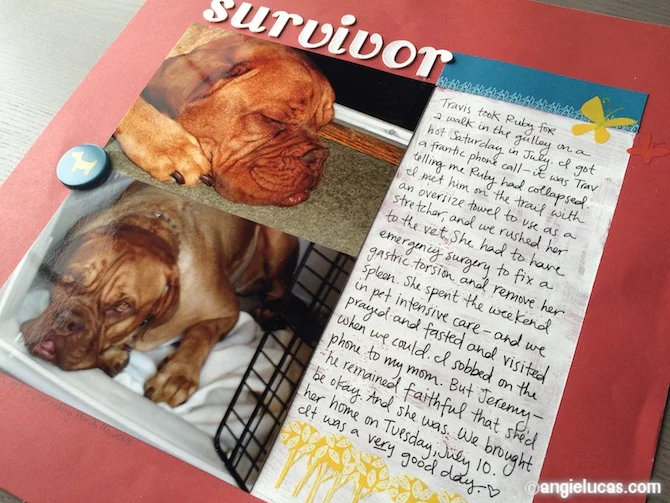 survivor
Travis took Ruby for
a walk in the gulley on a
hot Saturday in July. I got
a frantic phone call—it was Trav
telling me Ruby had collapsed.
I met him on the trail with
an oversize towel to use as a
stretcher, and we rushed her
to the vet. She had to have
emergency surgery to fix a
gastric torsion and remove her
spleen. She spent the weekend
in pet intensive care—and we
prayed and fasted and visited
when we could. I sobbed on the
phone to my mom. But Jeremy—
he remained faithful that she'd
be okay. And she was. We brought
her home on Tuesday, July 10.
It was a very good day—♡
©angielucas.com